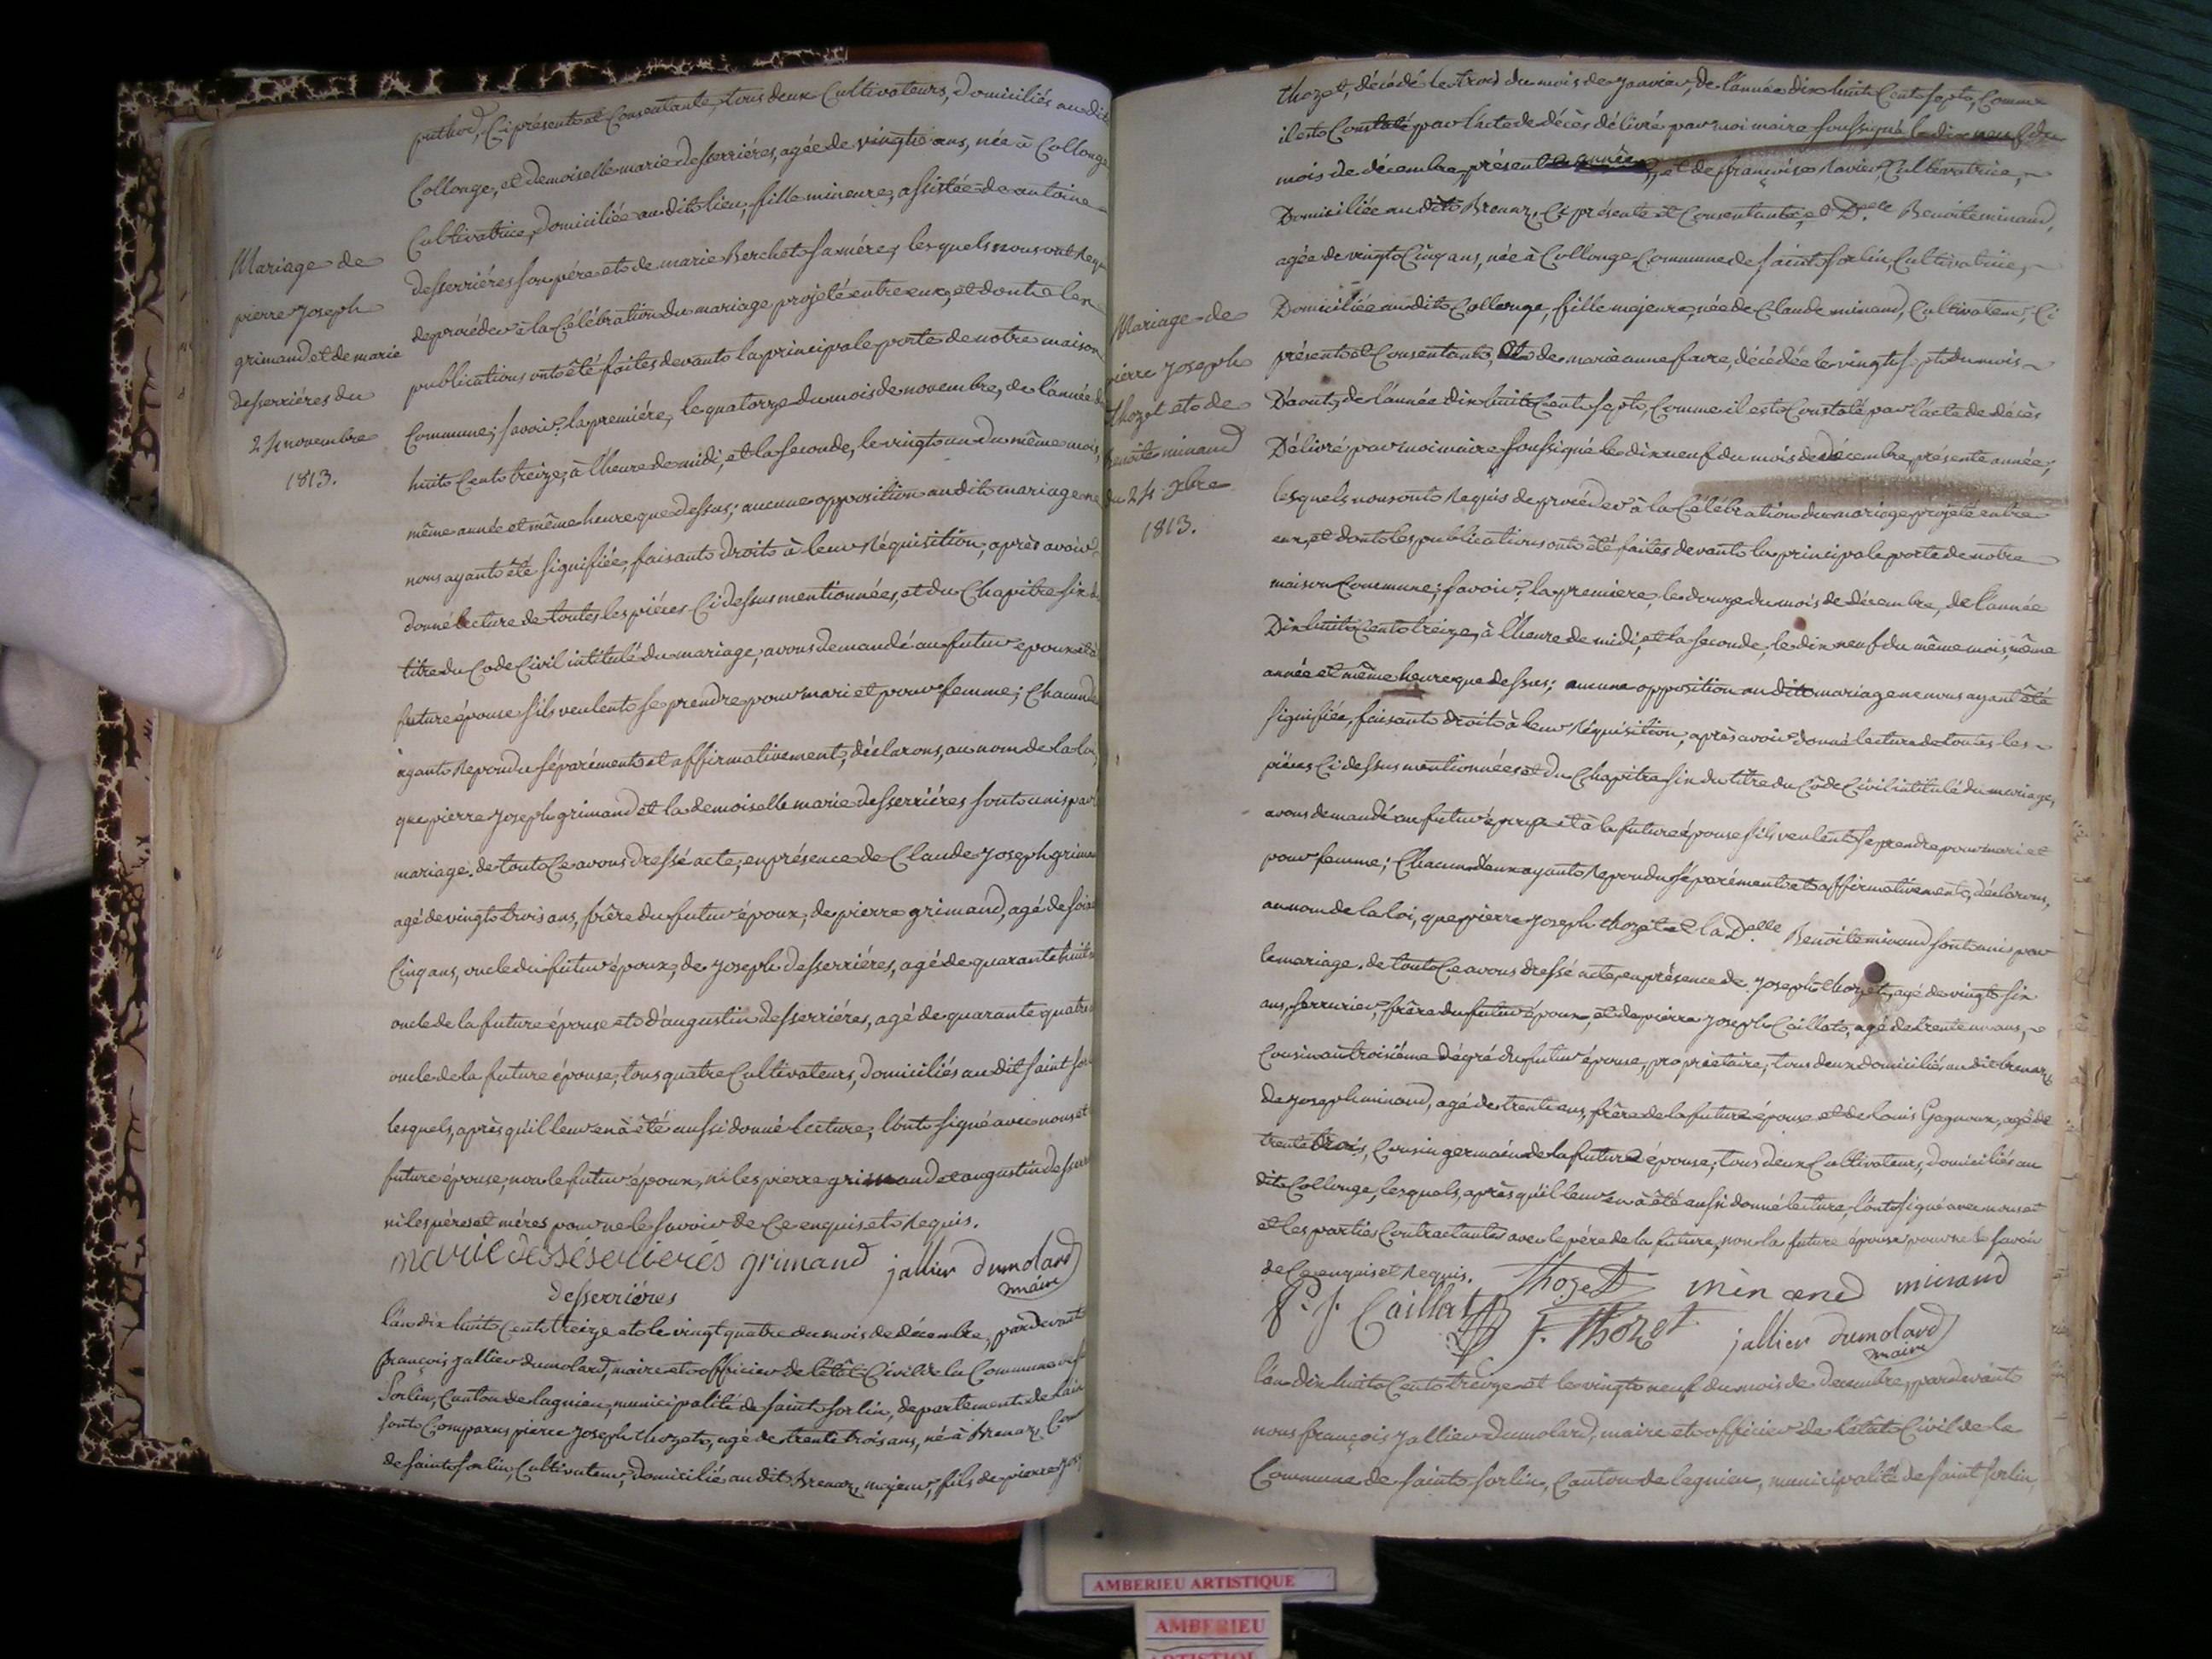 puthod, Ci présente et Consentante, tous deux Cultivateurs, Domiciliés au dit
Collonge, et demoiselle marie desserriéres, agée de vingt ans, née à Collonge
Cultivatrice, domiciliée au dit lieu, fille mineure, assistée de antoine
desserriéres son pére et de marie Berchet sa mére, lesquels nous ont requ
de procéder à la Célébration du mariage projeté entre eux, et dont les
publications ont été faites devant la principale porte de notre maison
Commune; savoir: la premiére, le quatorze du mois de novembre, de l'année d
huit Cent treize, à l'heure de midi, et la seconde, le vingt un du même mois,
même année et même heure que dessus; aucune opposition au dit mariage ne
nous ayant été signifiée, faisant droit à leur réquisition, après avoir
donné lecture de toutes les piéces Ci dessus mentionnées, et du Chapitre six d
titre du Code Civil intitulé du mariage, avons demandé au futur epoux et à
future épouse s'ils veulent se prendre pour mari et pour femme; Chacun d
ayant répondu séparément et affirmativement, déclarons, au nom de la loi,
que pierre Joseph grimand et la demoiselle marie desserriéres sont unis par
mariage. de tout Ce avons dressé acte, en présence de Claude Joseph griman
agé de vingt trois ans, frêre du futur époux, de pierre grimand, agé de soix
Cinq ans, oncle du futur époux, de Joseph desserriéres, agé de quarante huit
oncle de la future épouse et d'augustin desserriéres, agé de quarante quatre
oncle de la future épouse, tous quatre Cultivateurs, domiciliés au dit saint sor
lesquels, après qu'il leur en à été aussi donné lecture, l'ont signé avec nous et
future épouse, non le futur époux, ni les pierre grimand et augustin desserri
ni les péres et méres pour ne le savoir de Ce enquis et requis.
Mariage de
pierre Joseph
grimand et de marie
desserriéres du
24 novembre
1813.
marie desséserierés grimand jallier dumolard
maire
desserriéres
l'an dix huit Cent treize et le vingt quatre du mois de décembre, pardevant
françois jallier dumolard, maire et officier de l'état Civil de la Commune de s
Sorlin, Canton de lagnieu, municipalité de saint sorlin, departement de l'ain
sont Comparus pierre Joseph thozet, agé de trente trois ans, né à Brenaz, Com
de saint sorlin, Cultivateur, domicilié au dit Brenaz, majeur, fils de pierre Jos
thozet, décédé le trois du mois de Janvier, de l'année dix huit Cent sept, Comme
il est Constaté par l'acte de décès délivré par moi maire soussigné le dix neuf du
mois de décembre, présente année, et de françoise Ravier, Cultivatrice,
Domiciliée au dit Brenaz, Ci présente et Consentante, et D.elle Benoite minand,
agée de vingt Cinq ans, née à Collonge Commune de saint sorlin, Cultivatrice,
Domiciliée au dit Collonge, fille majeure, née de Claude minand, Cultivateur, Ci
présent et Consentant, et de marie anne favre, décédée le vingt sept du mois
D'aout, de l'année dix huit Cent sept, Comme il est Constaté par l'acte de décès
Délivré par moi maire soussigné le dix neuf du mois de décembre, présente année;
lesquels nous ont requis de procéder à la Célébration du mariage projeté entre
eux, et dont les publications ont été faites devant la principale porte de notre
maison Commune; savoir: la premiere, le douze du mois de décembre, de l'année
Dix huit Cent treize, à l'heure de midi, et la seconde, le dix neuf du même mois, même
année et même heure que dessus; aucune opposition au dit mariage ne nous ayant été
signifiée, faisant droit à leur réquisition, après avoir donné lecture de toutes les
piéces Ci dessus mentionnées et du Chapitre six du titre du Code Civil intitulé du mariage,
avons demandé au futur époux et à la future épouse s'ils veulent se prendre pour mari et
pour femme; Chacun d'eux ayant répondu séparément et affirmativement, déclarons,
au nom de la loi, que pierre Joseph thozet et la D.elle Benoite minand sont unis par
le mariage. de tout Ce avons dressé acte, en présence de Joseph thozet, agé de vingt six
ans, serrurier, frêre du futur époux, et de pierre Joseph Caillat, agé de trente un ans,
Cousin au troisiéme dégré du futur épouse, propriétaire, tous deux domiciliés au dit brenaz,
de Joseph minand, agé de trente ans, frêre de la future épouse et de louis Gagnoux, agé de
trente trois, Cousin germain de la future épouse, tous deux Cultivateurs, domiciliés au
dit Collonge, lesquels, après qu'il leur en à été aussi donné lecture, l'ont signé avec nous et
et les parties Contractantes avec le pére de la future, non la future épouse pour ne le savoir
de Ce enquis et requis.
Mariage de
pierre Joseph
thozet et de
Benoite minand
du 24 xbre
1813.
Thozet minand minand
P. J. Caillat J. Thozet jallier dumolard
maire
l'an dix huit Cent treize et le vingt neuf du mois de decembre, pardevant
nous françois Jallier dumolard, maire et officier de l'état Civil de la
Commune de saint sorlin, Canton de lagnieu, municipalité de saint sorlin,
AMBERIEU ARTISTIQUE
AMBERIEU
ARTISTIQUE